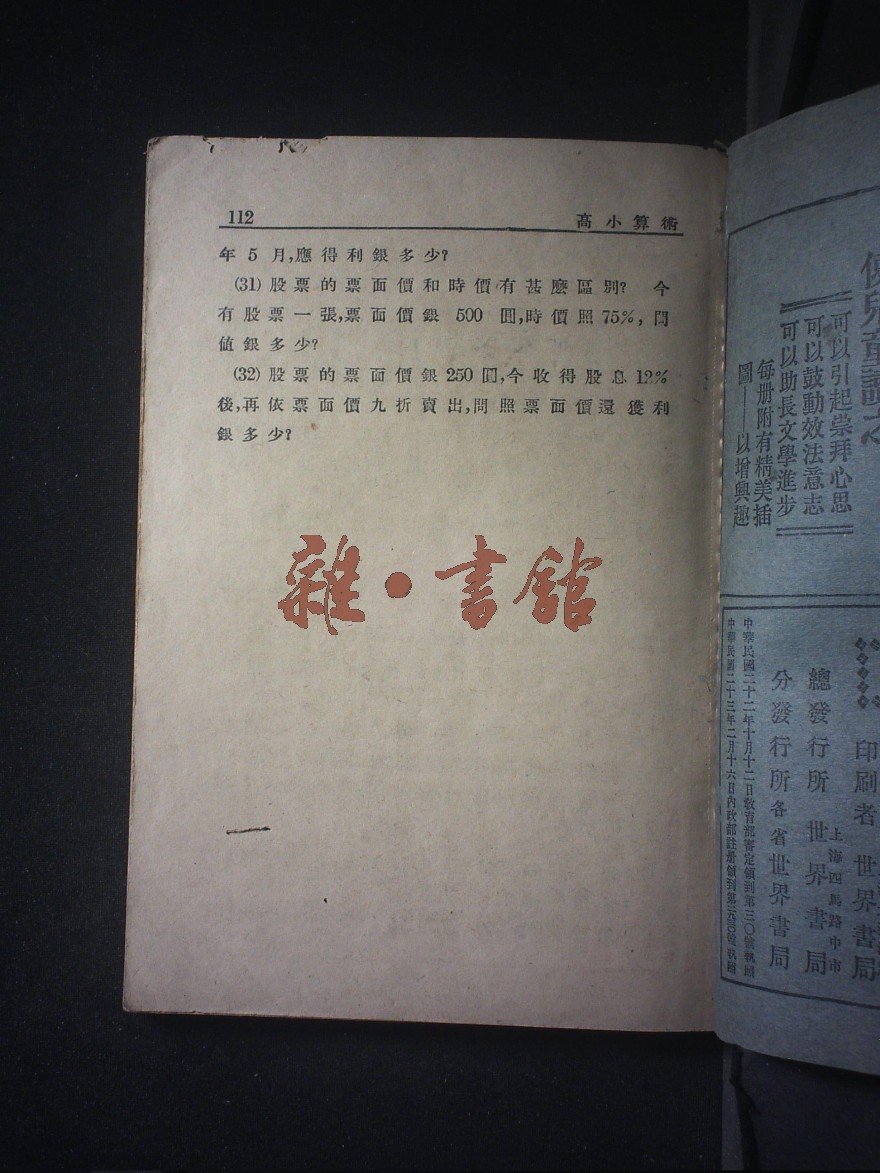 112 高小算術
年5月,應得利銀多少?
(31)股票的票面價和時價有甚麼區別? 今
有股票一張,票面價銀500圓,時價照75%,問
值銀多少?
(32)股票的票面價銀250圓,今收得股息12%
後,再依票面價九折賣出,問照票面價還獲利
銀多少?
雜·書館
可以引起崇拜心思
可以鼓動效法意志
可以助長文學進步
每册附有精美插
圖——以增興趣
印刷者 世界書局
上海四馬路中市
總發行所 世界書局
分發行所 各省世界書局
中華民國二十二年十月十二日教育部審定領到第三〇號執照
中華民國二十三年二月十六日內政部註册領到第